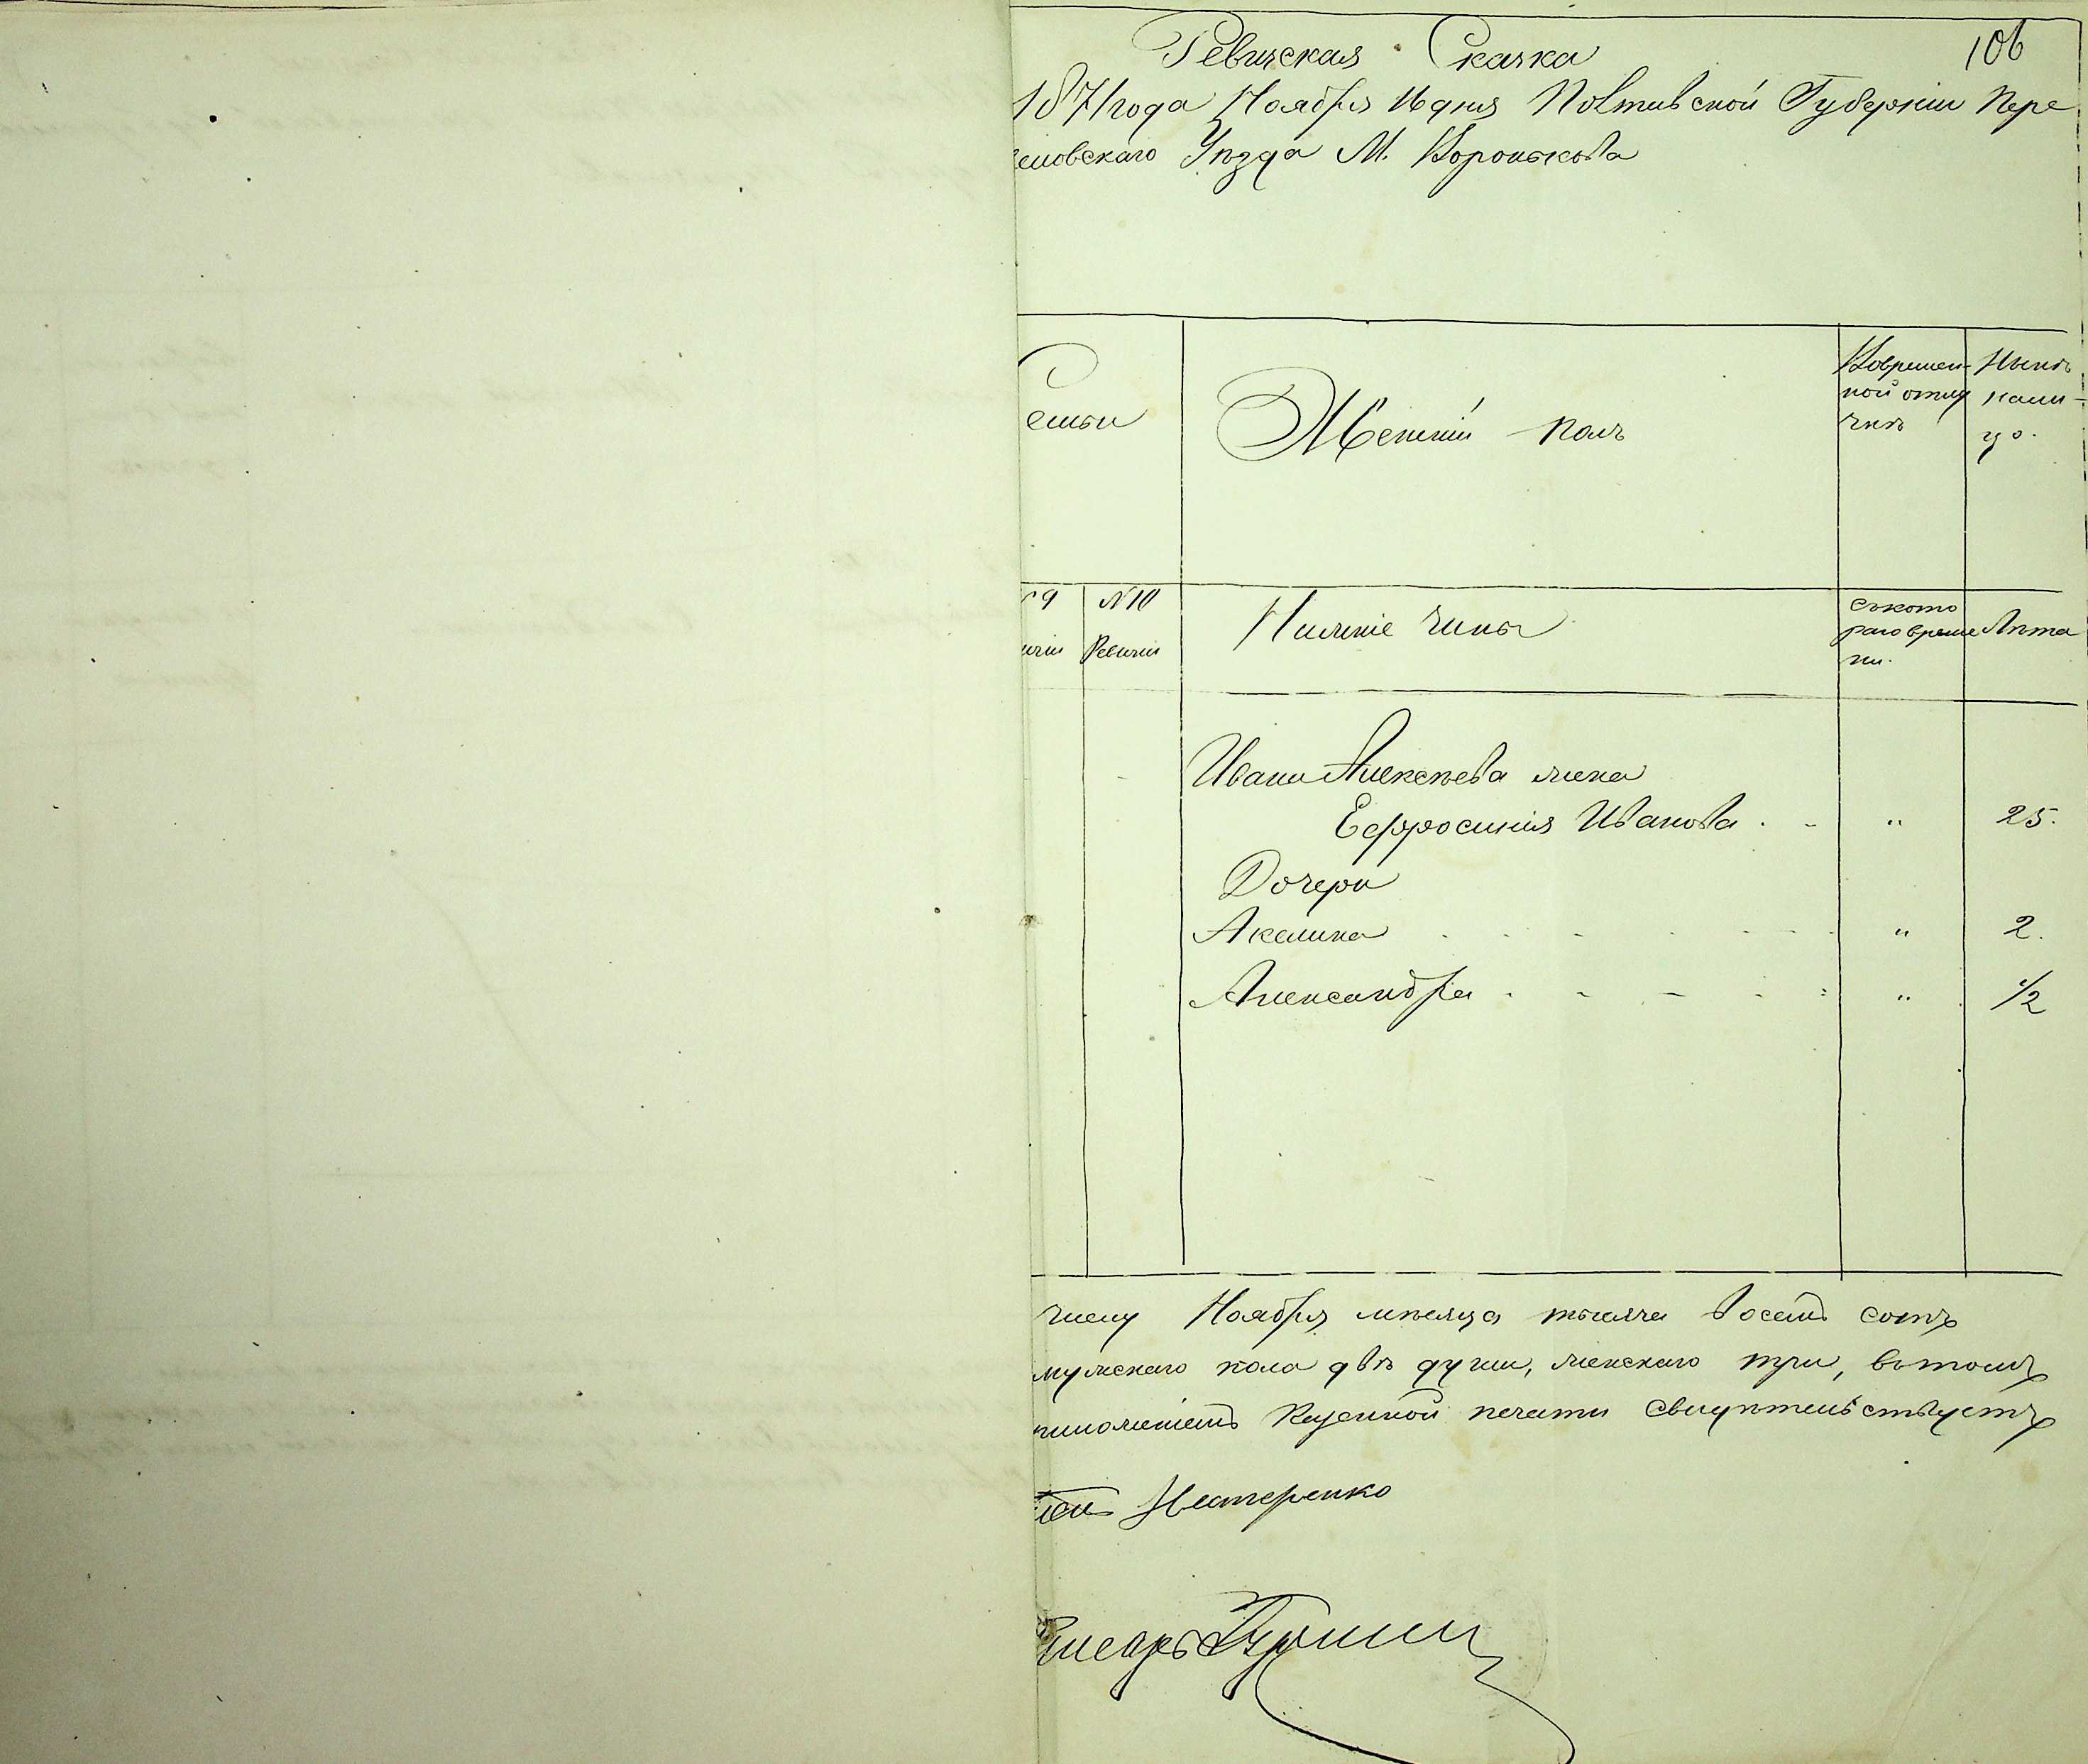 Ревизская Сказка
106
1871 года Ноября 16 дня Полтавской Губерніи Пере
яславскаго Уѣзда М. Воронькова
Семьи
Женскій полъ
Вовремен-
ной отлу
чкѣ
Нынѣ
нали-
цо.
№ 9
визіи
№ 10
Ревизіи
Нижніе чины
съкото
раго време
ни.
Лѣта
Ивана Алексѣева жена
Ефросинія Иванова . - " 25.
Дочери
Акилина " 2.
Александра " 1/2
числу Ноября мѣсяца тысяча восемь сотъ
мужскаго пола двѣ души, женскаго три, вътомъ
приложеніемъ Казенной печати свидѣтельствуетъ
Нестеренко
Писарь